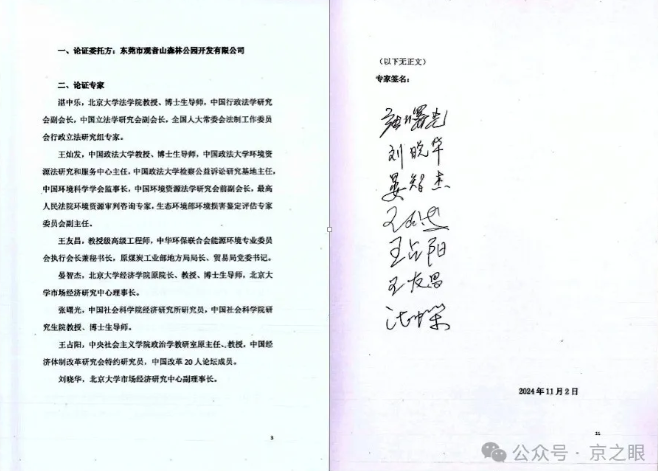 一、论证委托方：东莞市观音山森林公园开发有限公司
二、论证专家
湛中乐，北京大学法学院教授、博士生导师，中国行政法学研究
会副会长，中国立法学研究会副会长，全国人大常委会法制工作委员
会行政立法研究组专家。
王灿发，中国政法大学教授、博士生导师，中国政法大学环境资
源法研究和服务中心主任，中国政法大学检察公益诉讼研究基地主任，
中国环境科学学会监事长，中国环境资源法学研究会前副会长，最高
人民法院环境资源审判咨询专家，生态环境部环境损害鉴定评估专家
委员会副主任。
王友昌，教授级高级工程师，中华环保联合会能源环境专业委员
会执行会长兼秘书长，原煤炭工业部地方局局长、贸易局党委书记。
晏智杰，北京大学经济学院原院长、教授、博士生导师，北京大
学市场经济研究中心理事长。
张曙光，中国社会科学院经济研究所研究员，中国社会科学院研
究生院教授、博士生导师。
王占阳，中央社会主义学院政治学教研室原主任、教授，中国经
济体制改革研究会特约研究员，中国改革 20 人论坛成员。
刘晓华，北京大学市场经济研究中心副理事长。
3
（以下无正文）
专家签名：
张曙光
刘晓华
晏智杰
王占阳
2024 年 11 月 2 日
21
公众号 · 京之眼